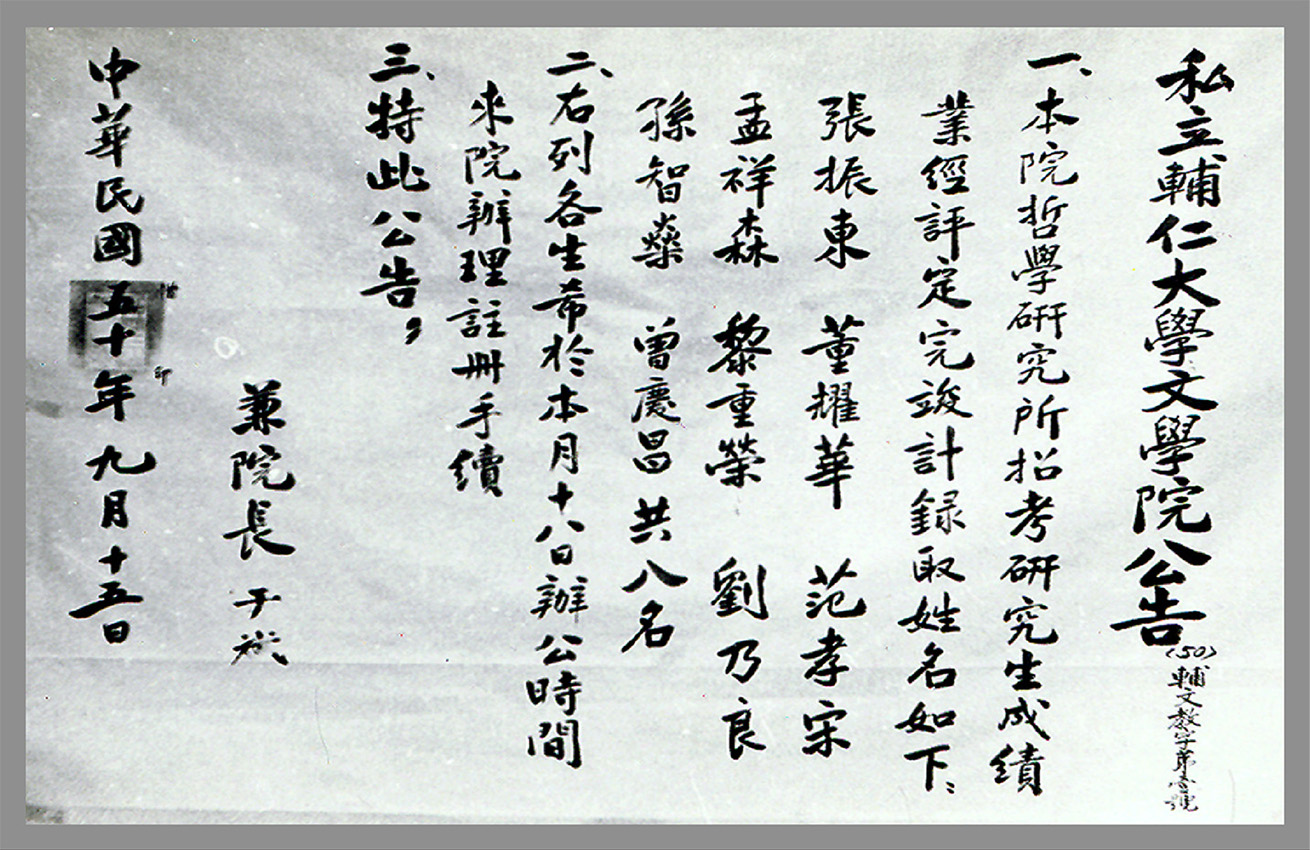 私立輔仁大學文學院公告
(50)輔文教字第壹號
一、本院哲學研究所招考研究生成績
業經評定完竣計錄取姓名如下：
張振東 董耀華 范孝宋
孟祥森 黎重榮 劉乃良
孫智燊 曾慶昌共八名
二、右列各生希於本月十八日辦公時間
來院辦理註冊手續
三、特此公告，
兼院長于斌
中華民國五十年九月十五日
借印